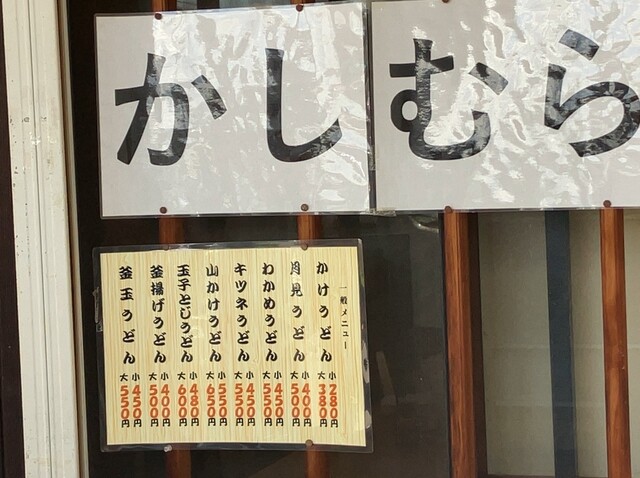 かしむら
一般メニュー
かけうどん 小280円 大380円
月見うどん 小400円 大500円
わかめうどん 小450円 大550円
キツネうどん 小450円 大550円
山かけうどん 小550円 大650円
玉子とじうどん 小480円 大600円
釜揚げうどん 小400円 大500円
釜玉うどん 小450円 大550円